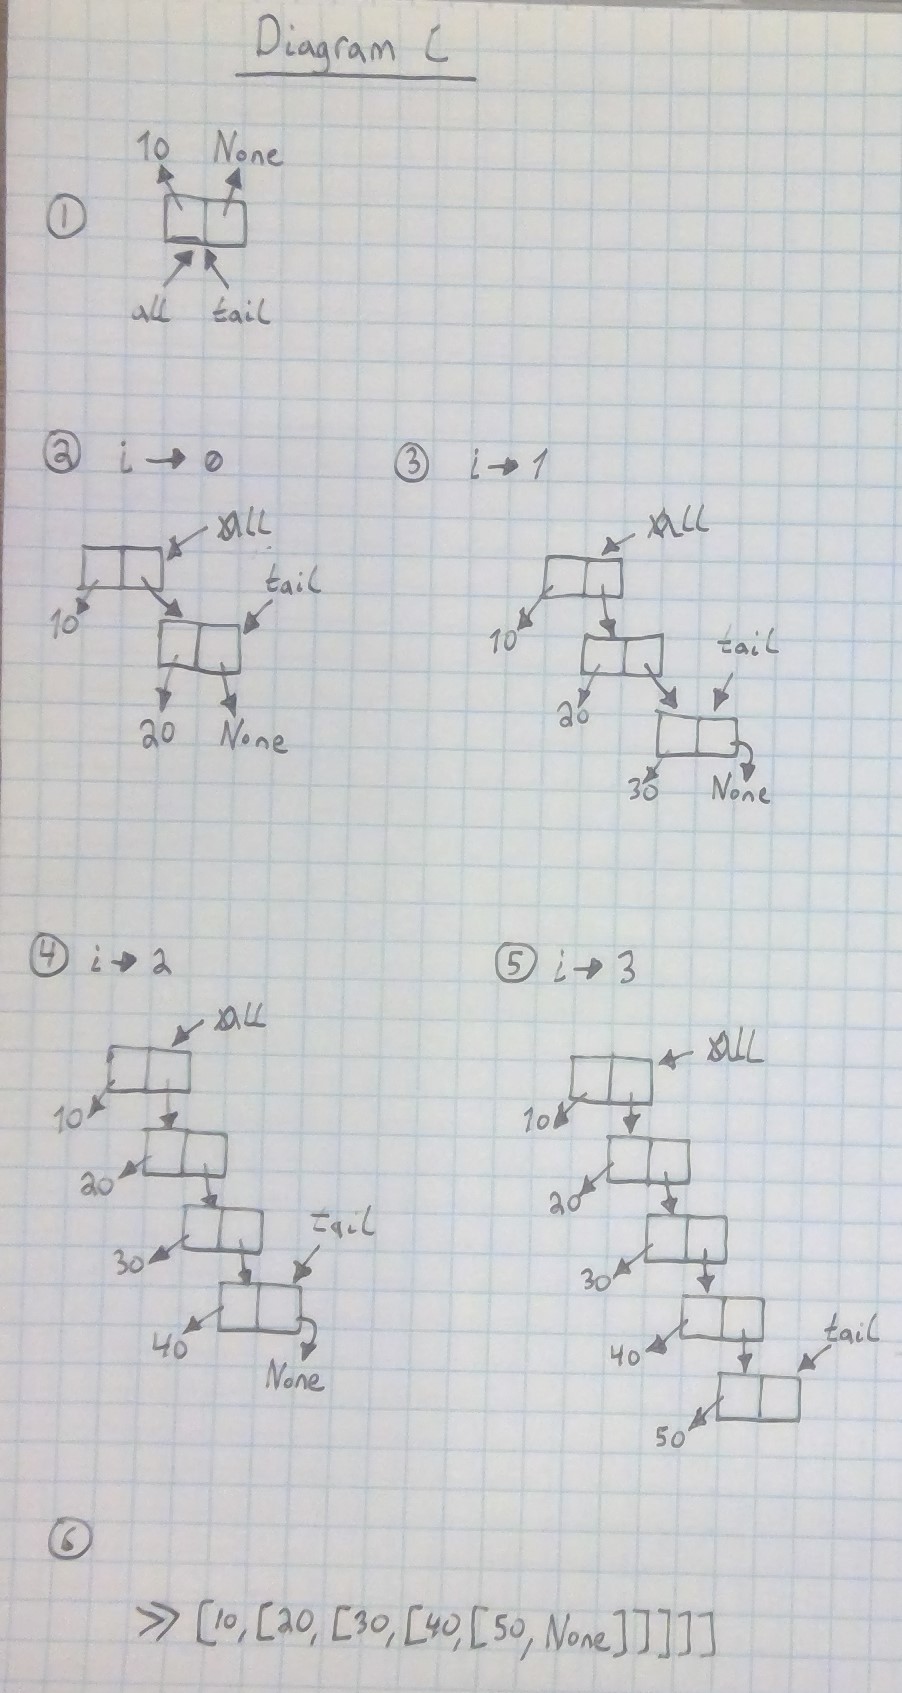 Diagram C
10 None
①
all tail
② i → 0
all
tail
10
20 None
③ i → 1
all
tail
10
20
30 None
④ i → 2
all
10
20
tail
30
40
None
⑤ i → 3
all
10
20
30
tail
40
50
⑥
>> [10, [20, [30, [40, [50, None]]]]]